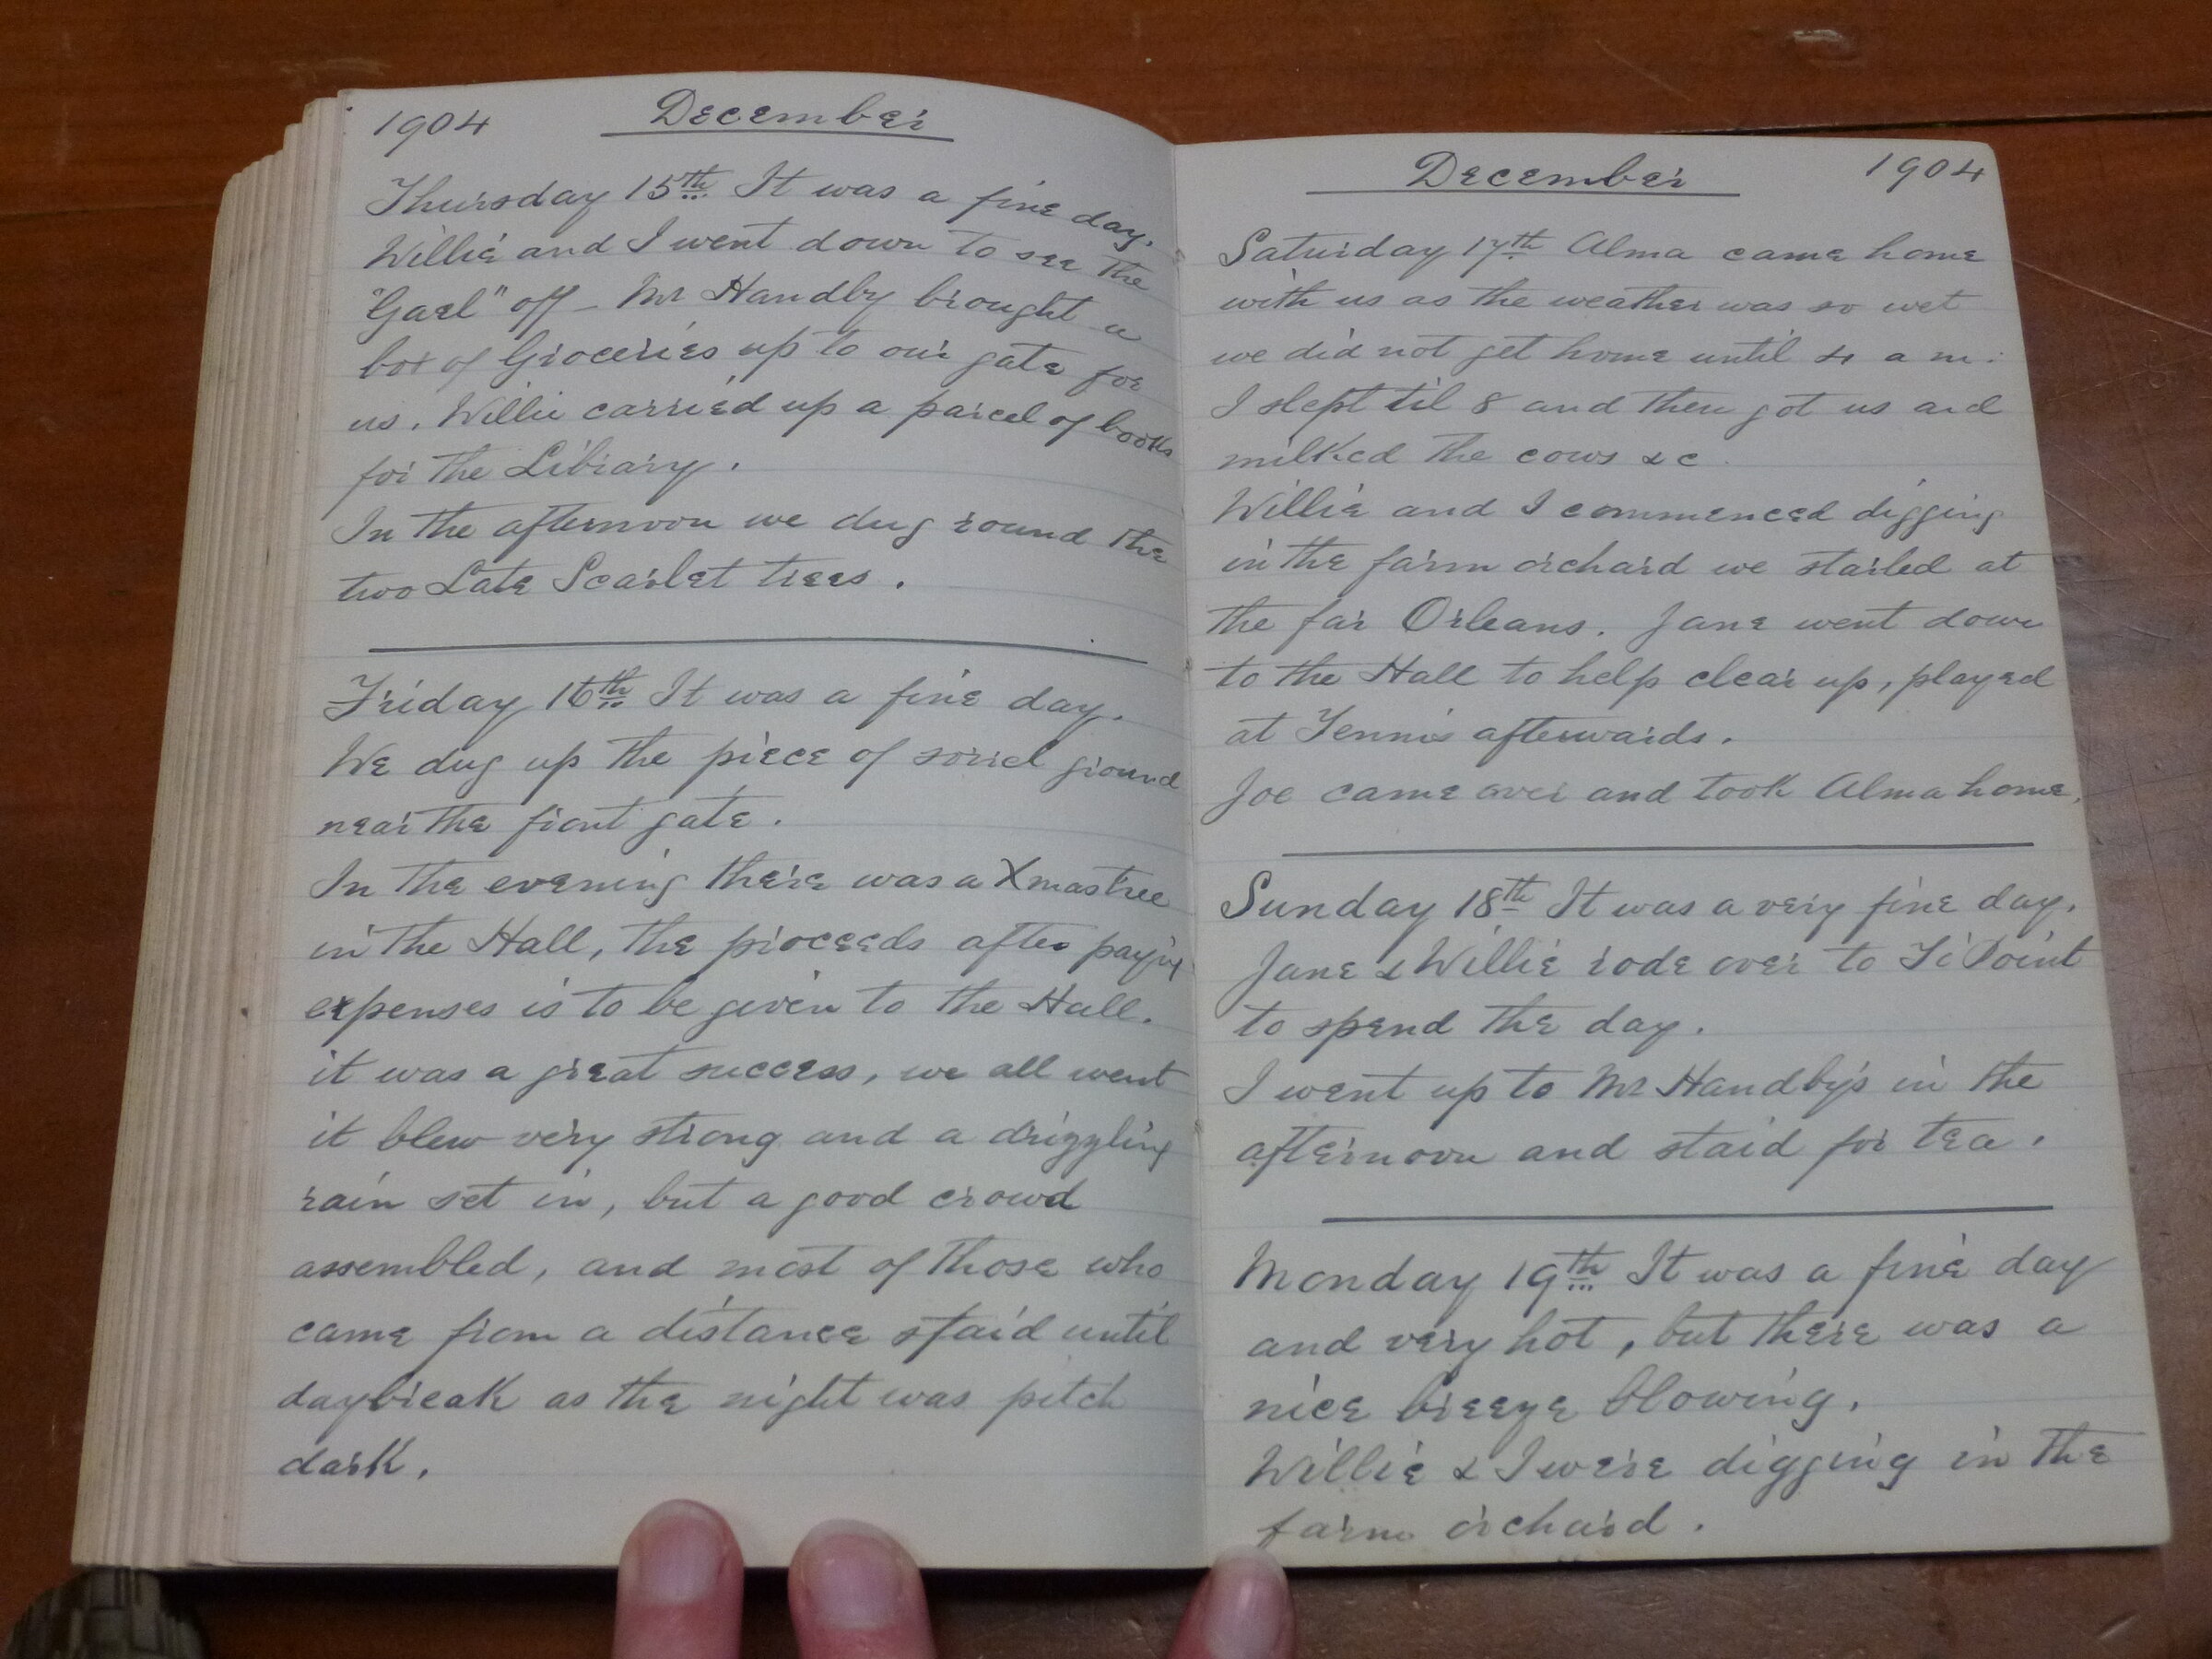 1904 December
Thursday 15th It was a fine day.
Willie and I went down to see the
"Gael" off - Mr Handby brought a
box of Groceries up to our gate for
us. Willie carried up a parcel of books
for the Library.
In the afternoon we dug round the
two Late Scarlet trees.
Friday 16th It was a fine day.
We dug up the piece of sorrel ground
near the front gate.
In the evening there was a Xmas tree
in the Hall, the proceeds after paying
expenses is to be given to the Hall.
it was a great success, we all went
it blew very strong and a drizzling
rain set in, but a good crowd
assembled, and most of those who
came from a distance staid until
daybreak as the night was pitch
dark.
December 1904
Saturday 17th Alma came home
with us as the weather was so wet
we did not get home until 4 a m.
I slept til 8 and then got us and
milked the cows & c.
Willie and I commenced digging
in the farm orchard we started at
the far Orleans. Jane went down
to the Hall to help clear up, played
at Tennis afterwards.
Joe came over and took Alma home.
Sunday 18th It was a very fine day.
Jane & Willie rode over to Ti Point
to spend the day.
I went up to Mr Handby's in the
afternoon and staid for tea.
Monday 19th It was a fine day
and very hot, but there was a
nice breeze blowing.
Willie & I were digging in the
farm orchard.